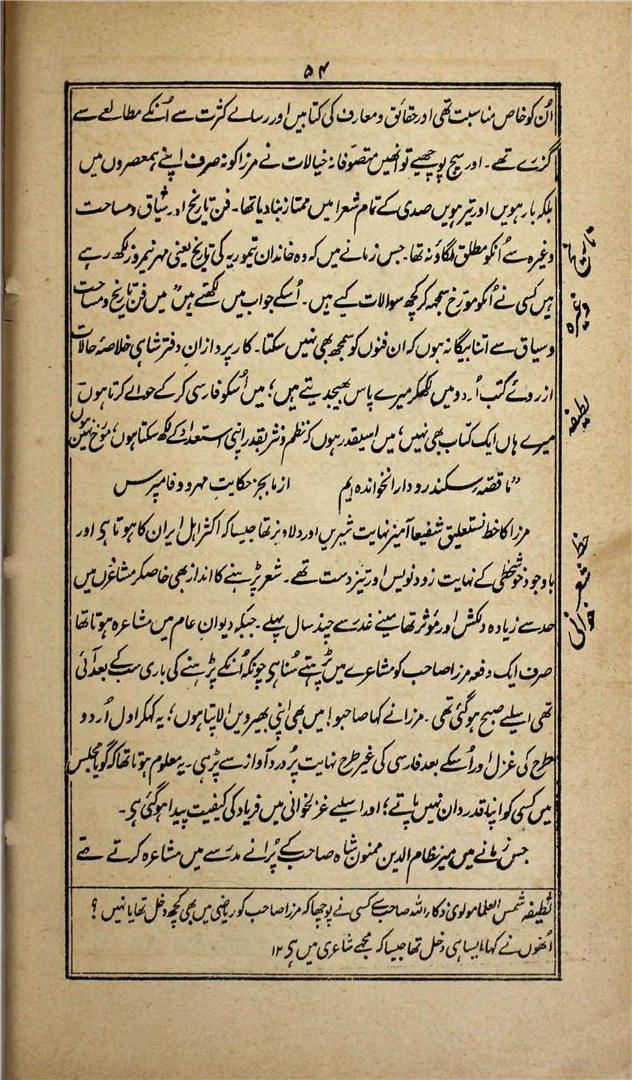 ۵۴
اُن کو خاص مناسبت تھی اور حقائق و معارف کی کتابیں اور رسالے کثرت سے اُنکے مطالعے سے
گزرے تھے۔ اور سچ پوچھیے تو انھیں متصوفانہ خیالات نے مرزا کو نہ صرف اپنے ہمعصروں میں
بلکہ بارہویں اور تیرہویں صدی کے تمام شعرا میں ممتاز بنا دیا تھا۔ فن تاریخ اور سیاق و مساحت
وغیرہ سے اُنکو مطلق لگاؤ نہ تھا۔ جس زمانے میں کہ وہ خاندان تیموریہ کی تاریخ یعنی مہر نیمروز لکھ رہے
ہیں کسی نے اُنکو مورّخ سمجھ کر کچھ سوالات کیے ہیں۔ اُسکے جواب میں لکھتے ہیں "میں فن تاریخ و مساحت
و سیاق سے اتنا بیگانہ ہوں کہ ان فنوں کو سمجھ بھی نہیں سکتا۔ کارپردازانِ دفتر شاہی خلاصۂ حالات
از روئے کتب اُردو میں لکھکر میرے پاس بھیجدیتے ہیں؛ میں اُسکو فارسی کر کے حوالے کرتا ہوں
میرے ہاں ایک کتاب بھی نہیں؛ میں اسیقدر ہوں کہ نظم و نثر بقدر اپنی استعداد کے لکھ سکتا ہوں، مورّخ نہیں ہوں
"ما قصّۂ سکندر و دارا نخواندہ ایم از ما بجز حکایتِ مہر و وفا مپرس
مرزا کا خط نستعلیق شفیعا آمیز نہایت شیریں اور دلاویز تھا جیسا کہ اکثر اہل ایران کا ہوتا ہی اور
باوجود خوشخطی کے نہایت زود نویس اور تیز دست تھے۔ شعر پڑہنے کا انداز بھی خاصکر مشاعروں میں
حد سے زیادہ دلکش اور موٴثر تھا مینے غدر سے چند سال پہلے۔ جبکہ دیوان عام میں مشاعرہ ہوتا تھا
صرف ایک دفعہ مرزا صاحب کو مشاعرے میں پڑہتے سُنا ہی چونکہ اُنکے پڑہنے کی باری سب کے بعد آئی
تھی اسلیے صبح ہو گئی تھی۔ مرزا نے کہا صاحبو! میں بھی اپنی بھیرویں الاپتا ہوں؛ یہ کہکر اول اُردو
طرح کی غزل اور اُسکے بعد فارسی کی غیر طرح نہایت پُردرد آواز سے پڑہی۔ یہ معلوم ہوتا تھا کہ گویا مجلس
میں کسی کو اپنا قدردان نہیں پاتے؛ اور اسلیے غزلخوانی میں فریاد کی کیفیت پیدا ہو گئی ہی۔
جس زمانے میں میر نظام الدین ممنون شاہ صاحب کے پُرانے مدرسے میں مشاعرہ کرتے تھے
لطیفہ شمس العلما مولوی ذکاء اللہ صاحب سے کسی نے پوچھا کہ مرزا صاحب کو ریاضی میں بھی کچھ دخل تھا یا نہیں؟
اُنھوں نے کہا، ایسا ہی دخل تھا جیسا کہ مجھے شاعری میں ہی ۱۲
وغیرہ
لطیفہ
خط
شعر خوانی